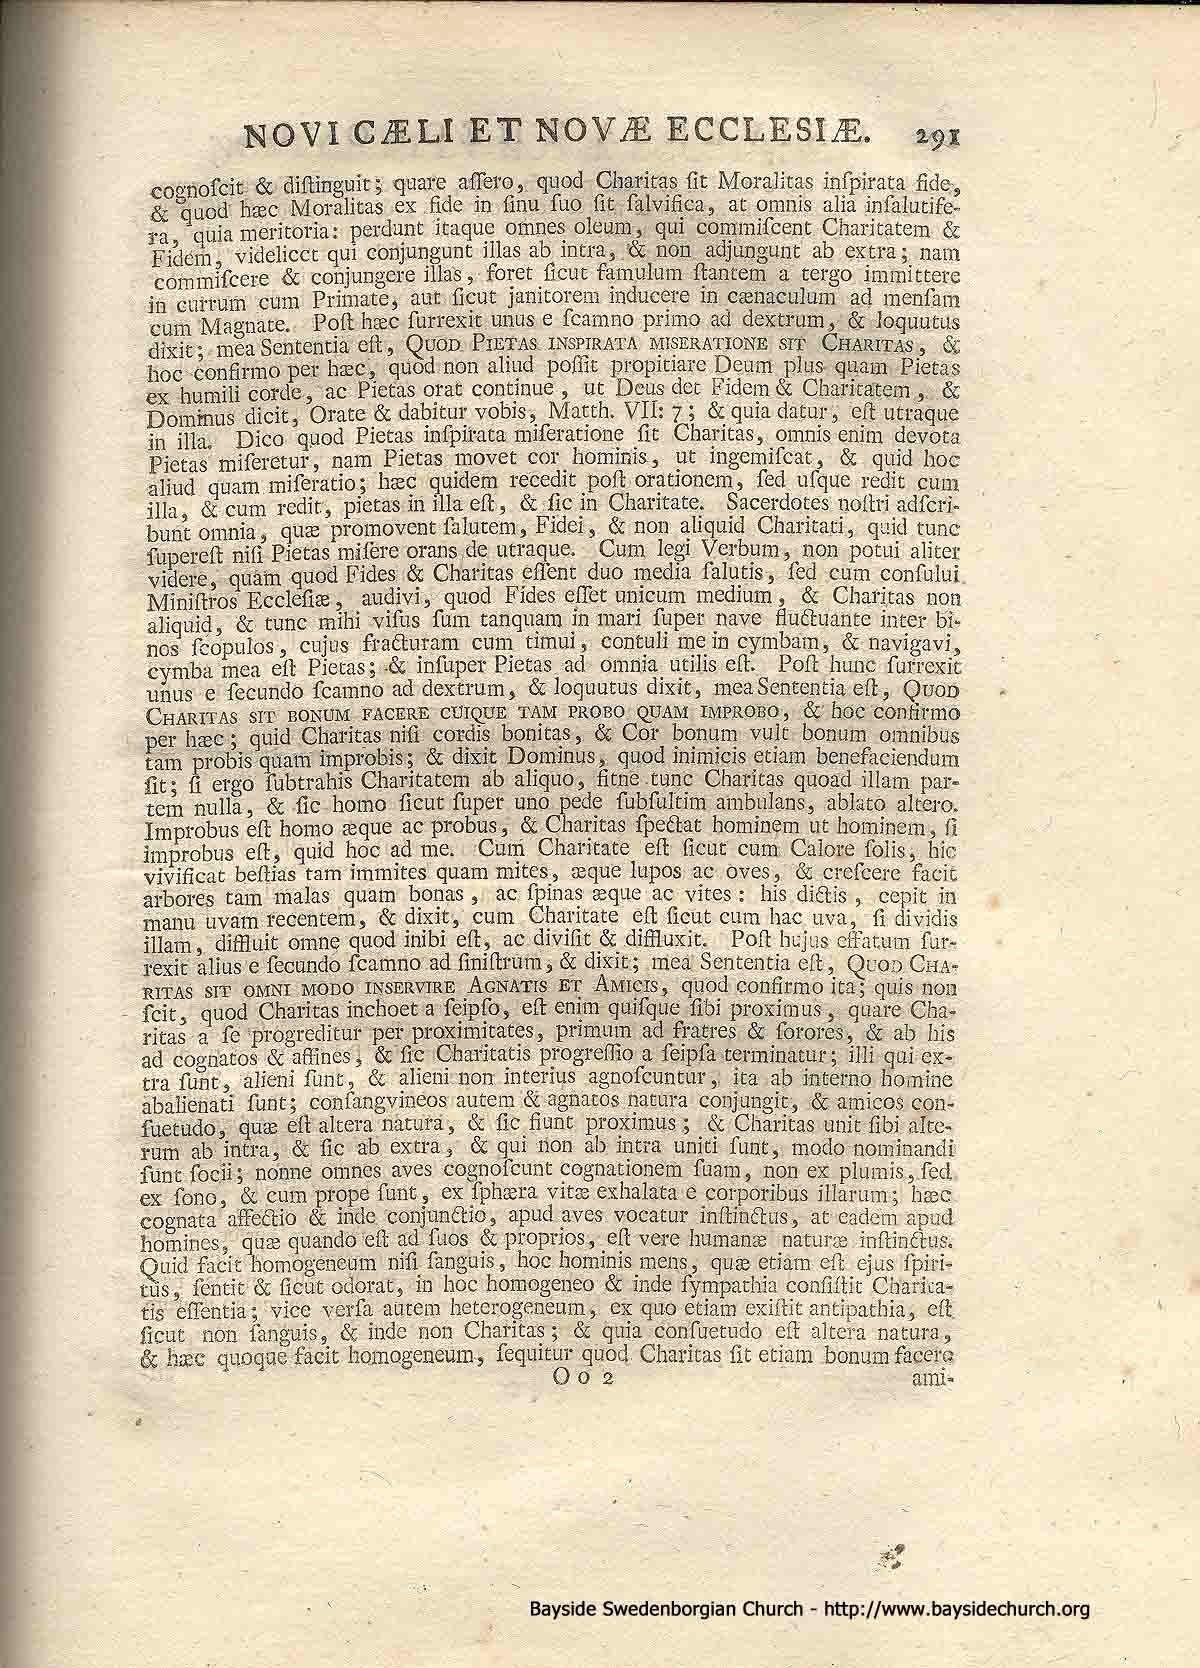 NOVI CÆLI ET NOVÆ ECCLESIÆ. 291
cognoſcit & diſtinguit; quare aſſero, quod Charitas ſit Moralitas inſpirata fide,
& quod hæc Moralitas ex fide in ſinu ſuo ſit ſalvifica, at omnis alia inſalutife-
ra, quia meritoria: perdunt itaque omnes oleum, qui commiſcent Charitatem &
Fidem, videlicet qui conjungunt illas ab intra, & non adjungunt ab extra; nam
commiſcere & conjungere illas, foret ſicut famulum ſtantem a tergo immittere
in currum cum Primate, aut ſicut janitorem inducere in cænaculum ad menſam
cum Magnate. Poſt hæc ſurrexit unus e ſcamno primo ad dextrum, & loquutus
dixit; mea Sententia eſt, QUOD PIETAS INSPIRATA MISERATIONE SIT CHARITAS, &
hoc confirmo per hæc, quod non aliud poſſit propitiare Deum plus quam Pietas
ex humili corde, ac Pietas orat continue, ut Deus det Fidem & Charitatem, &
Dominus dicit, Orate & dabitur vobis, Matth. VII: 7; & quia datur, eſt utraque
in illa. Dico quod Pietas inſpirata miſeratione ſit Charitas, omnis enim devota
Pietas miſeretur, nam Pietas movet cor hominis, ut ingemiſcat, & quid hoc
aliud quam miſeratio; hæc quidem recedit poſt orationem, ſed uſque redit cum
illa, & cum redit, pietas in illa eſt, & ſic in Charitate. Sacerdotes noſtri adſcri-
bunt omnia, quæ promovent ſalutem, Fidei, & non aliquid Charitati, quid tunc
ſupereſt niſi Pietas miſere orans de utraque. Cum legi Verbum, non potui aliter
videre, quam quod Fides & Charitas eſſent duo media ſalutis, ſed cum conſului
Miniſtros Eccleſiæ, audivi, quod Fides eſſet unicum medium, & Charitas non
aliquid, & tunc mihi viſus ſum tanquam in mari ſuper nave fluctuante inter bi-
nos ſcopulos, cujus fracturam cum timui, contuli me in cymbam, & navigavi,
cymba mea eſt Pietas; & inſuper Pietas ad omnia utilis eſt. Poſt hunc ſurrexit
unus e ſecundo ſcamno ad dextrum, & loquutus dixit, mea Sententia eſt, QUOD
CHARITAS SIT BONUM FACERE CUIQUE TAM PROBO QUAM IMPROBO, & hoc confirmo
per hæc; quid Charitas niſi cordis bonitas, & Cor bonum vult bonum omnibus
tam probis quam improbis; & dixit Dominus, quod inimicis etiam benefaciendum
ſit; ſi ergo ſubtrahis Charitatem ab aliquo, fitne tunc Charitas quoad illam par-
tem nulla, & ſic homo ſicut ſuper uno pede ſubſultim ambulans, ablato altero.
Improbus eſt homo æque ac probus, & Charitas ſpectat hominem ut hominem, ſi
improbus eſt, quid hoc ad me. Cum Charitate eſt ſicut cum Calore ſolis, hic
vivificat beſtias tam immites quam mites, æque lupos ac oves, & creſcere facit
arbores tam malas quam bonas, ac ſpinas æque ac vites: his dictis, cepit in
manu uvam recentem, & dixit, cum Charitate eſt ſicut cum hac uva, ſi dividis
illam, diffluit omne quod inibi eſt, ac diviſit & diffluxit. Poſt hujus effatum ſur-
rexit alius e ſecundo ſcamno ad ſiniſtrum, & dixit; mea Sententia eſt, QUOD CHA-
RITAS SIT OMNI MODO INSERVIRE AGNATIS ET AMICIS, quod confirmo ita; quis non
ſcit, quod Charitas inchoet a ſeipſo, eſt enim quiſque ſibi proximus, quare Cha-
ritas a ſe progreditur per proximitates, primum ad fratres & ſorores, & ab his
ad cognatos & affines, & ſic Charitatis progreſſio a ſeipſa terminatur; illi qui ex-
tra ſunt, alieni ſunt, & alieni non interius agnoſcuntur, ita ab interno homine
abalienati ſunt; conſangvineos autem & agnatos natura conjungit, & amicos con-
ſuetudo, quæ eſt altera natura, & ſic fiunt proximus; & Charitas unit ſibi alte-
rum ab intra, & ſic ab extra, & qui non ab intra uniti ſunt, modo nominandi
ſunt ſocii; nonne omnes aves cognoſcunt cognationem ſuam, non ex plumis, ſed
ex ſono, & cum prope ſunt, ex ſphæra vitæ exhalata e corporibus illarum; hæc
cognata affectio & inde conjunctio, apud aves vocatur inſtinctus, at eadem apud
homines, quæ quando eſt ad ſuos & proprios, eſt vere humanæ naturæ inſtinctus.
Quid facit homogeneum niſi ſanguis, hoc hominis mens, quæ etiam eſt ejus ſpiri-
tus, ſentit & ſicut odorat, in hoc homogeneo & inde ſympathia conſiſtit Charita-
tis eſſentia; vice verſa autem heterogeneum, ex quo etiam exiſtit antipathia, eſt
ſicut non ſanguis, & inde non Charitas; & quia conſuetudo eſt altera natura,
& hæc quoque facit homogeneum, ſequitur quod Charitas ſit etiam bonum facere
O o 2 ami-
Bayside Swedenborgian Church - http://www.baysidechurch.org